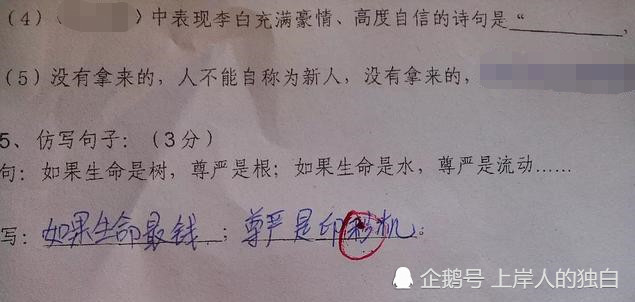 (4)( )中表现李白充满豪情、高度自信的诗句是“________,
(5)没有拿来的，人不能自称为新人，没有拿来的，
5、仿写句子：（3分）
句：如果生命是树，尊严是根；如果生命是水，尊严是流动……
写：如果生命最钱；尊严是印秒机。
企鹅号 上岸人的独白